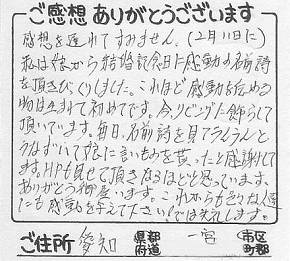 ご感想ありがとうございます
感想を遅れてすみません。(2月11日に)
私は娘から結婚記念日に感動の名前詩
を頂きびっくりしました。これほど感動を広める
物は生まれて初めてです。今、リビングに飾らして
頂いています。毎日、名前詩を見てうんうんと
うなずいて娘に言いものを貰ったと感謝して
ます。HPも見せて頂きなるほどと思っています。
ありがとう御座います。これからも色々な人達
にも感動を与えて下さい!では失礼します。
ご住所 愛知 都道府県 一宮 市区町郡